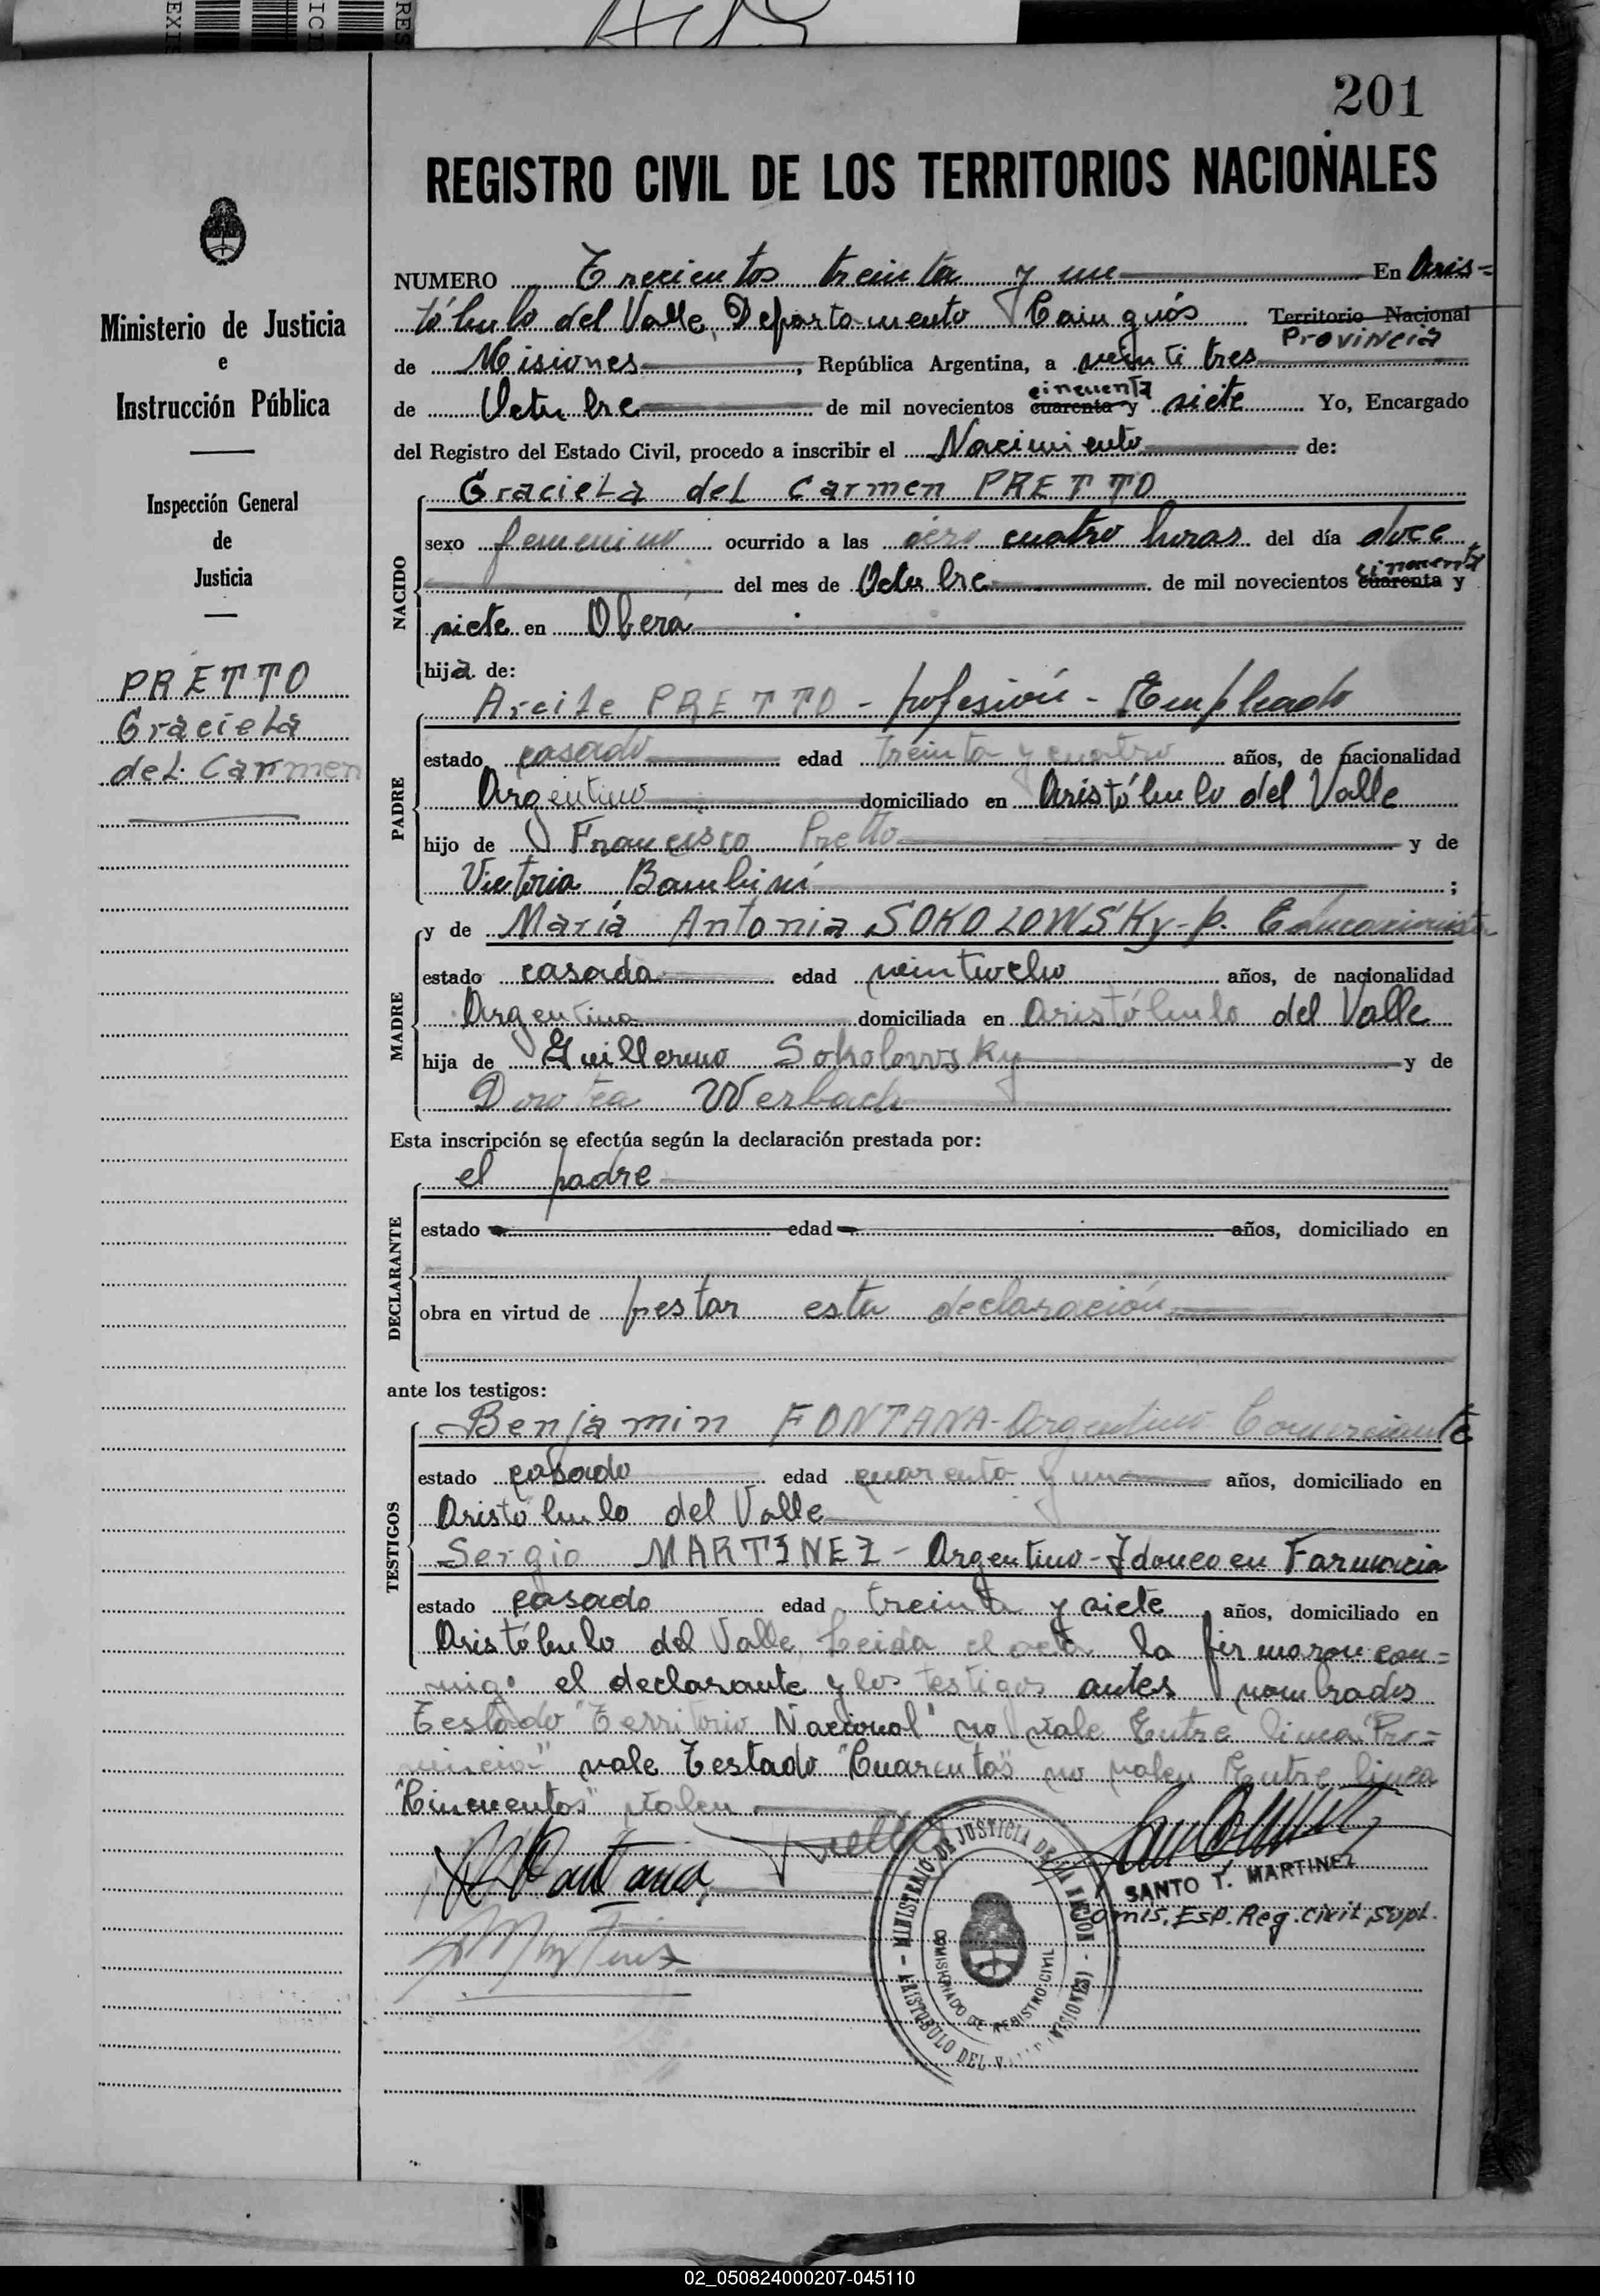 201
REGISTRO CIVIL DE LOS TERRITORIOS NACIONALES
Ministerio de Justicia
e
Instrucción Pública
Inspección General
de
Justicia
PRETTO
Graciela
del Carmen
NUMERO Trecientos treinta y un En Aris=
tóbulo del Valle, Departamento Cainguás Territorio Nacional
Provincia
de Misiones, República Argentina, a veinti tres
de Octubre de mil novecientos cuarenta y cincuenta siete Yo, Encargado
del Registro del Estado Civil, procedo a inscribir el Nacimiento de:
NACIDO
Graciela del Carmen PRETTO
sexo femenino ocurrido a las cero cuatro horas del día doce
del mes de Octubre de mil novecientos cuarenta y cincuenta
siete en Oberá
hija de:
PADRE
PRETTO - profesión - Empleado
estado casado edad treinta y cuatro años, de nacionalidad
Argentino domiciliado en Aristóbulo del Valle
hijo de Francisco Pretto y de
Victoria Bambini ;
MADRE
y de María Antonia SOKOLOWSKy - p. Educacionista
estado casada edad veintiocho años, de nacionalidad
Argentina domiciliada en Aristóbulo del Valle
hija de Guillermo Sokolowsky y de
Dorotea Werbach
Esta inscripción se efectúa según la declaración prestada por:
DECLARANTE
el padre
estado edad años, domiciliado en
obra en virtud de prestar esta declaración
ante los testigos:
TESTIGOS
Benjamin FONTANA - Argentino Comerciante
estado casado edad cuarenta y un años, domiciliado en
Aristóbulo del Valle
Sergio MARTINEZ - Argentino - Idoneo en Farmacia
estado casado edad treinta y siete años, domiciliado en
Aristóbulo del Valle Leida el acta la firmaron con=
migo el declarante y los testigos antes nombrados
Testado "Territorio Nacional" no vale Entre linea "Pro=
vincia" vale Testado "Cuarenta" no valen Entre linea
"Cincuenta" valen
Pretto
Fontana
Martinez
SANTO T. MARTINEZ
Comis. Esp. Reg. Civil Supl.
MINISTERIO DE JUSTICIA DE LA NACION
COMISIONADO DE REGISTRO CIVIL
ARISTOBULO DEL (MISIONES)
02_050824000207-045110